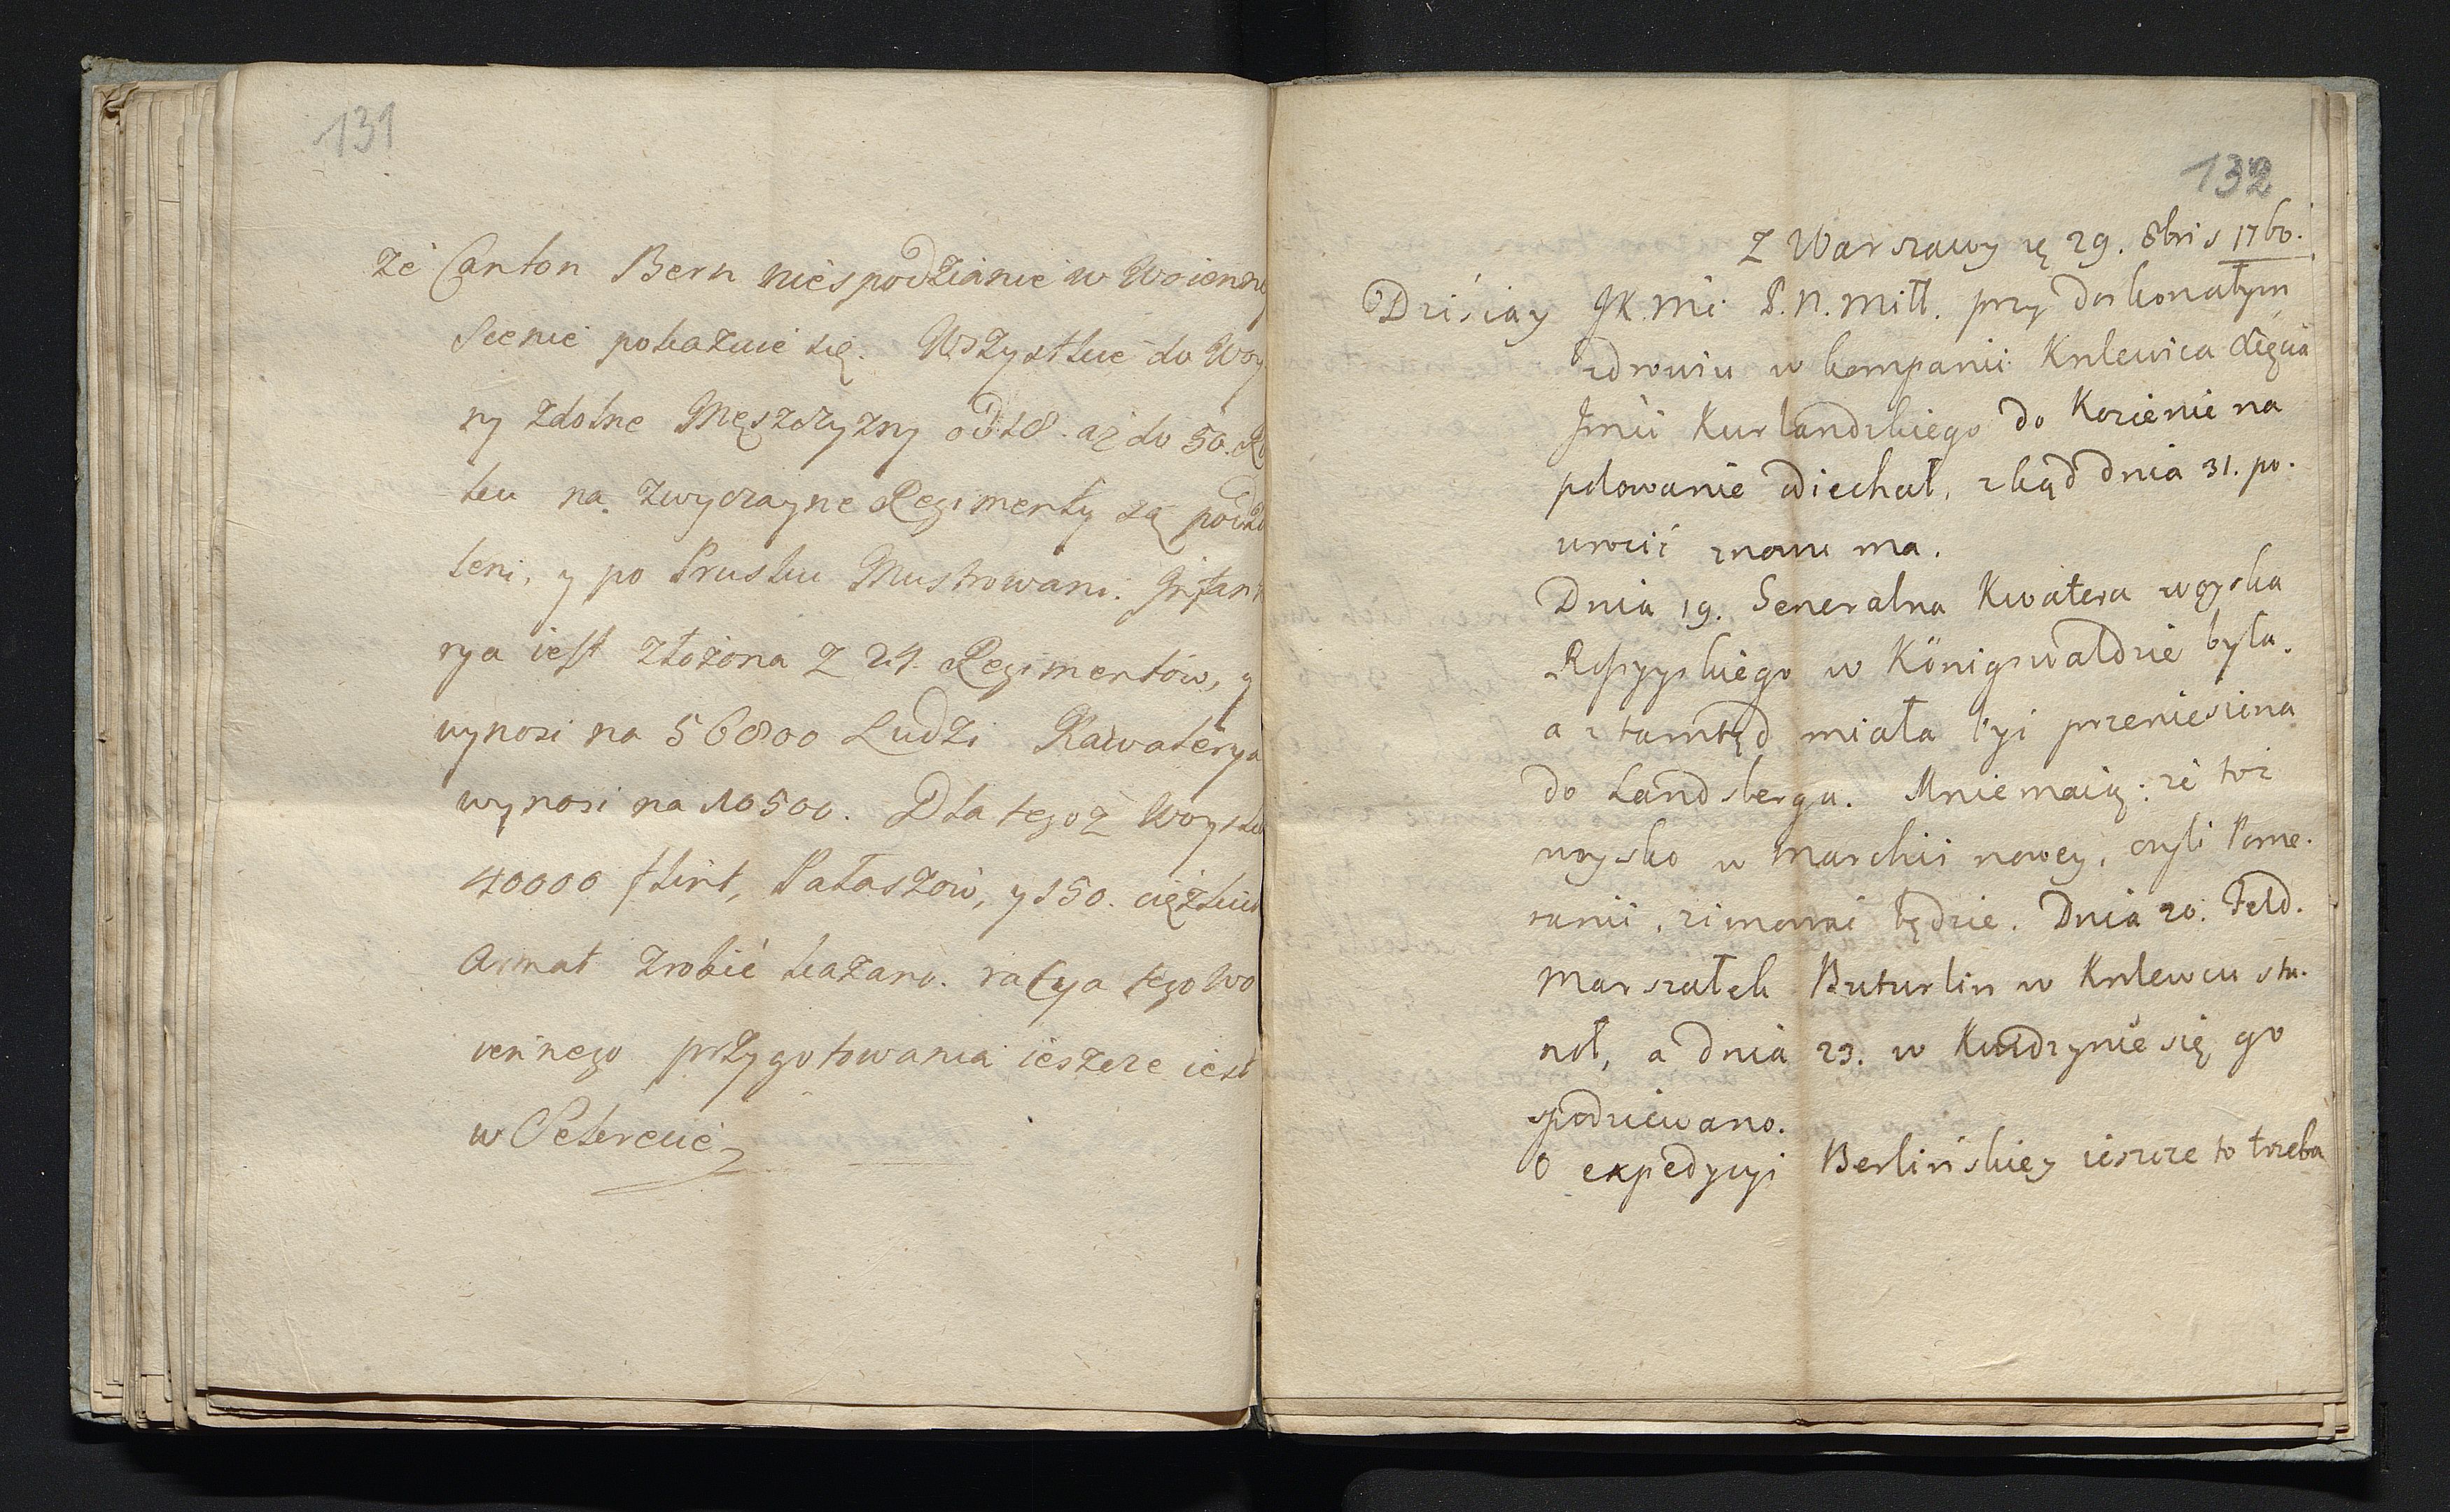 131
że Canton Bern niespodzianie w Woienney
Scenie pokazuie się. Wszystkie do Woy
ny zdolne Męszczyzny od 18. aż do 50. Ro
ku na zwyczayne Regimenty są podzie
leni, y po Prusku Mustrowani. Infant
rya iest złożona z 24. Regimentów, y
wynosi na 56800 Ludzi Kawalerya
wynosi na 10500. Dla tegoż Woyska
40000 flint, Pałaszow, y 150. cięzkich
Armat zrobić kazano. racya tego Wo
iennego przygotowania ieszcze iest
w Sekrecie
132
Z Warszawy die 29. 8bris 1760.
Dzisiay JK.Mć P.N.Mill. przy doskonałym
zdrowiu w kompanii Krlewica Xięcia
Jmći Kurlandzkiego do Kozienic na
polowanie wiechał, zkąd dnia 31. po.
wrocić znowu ma.
Dnia 19. Generalna Kwatera woyska
Rossyyskiego w Königswaldzie była.
a ztamtąd miała być przeniesiona
do Landsberga. Mniemaią: że toż
woysko w Marchii nowey, czyli Pome.
ranii, zimować będzie. Dnia 20. Feld.
Marszałek Buturlin w Krlewcu sta.
nął, a dnia 23. w Kwidzynie się go
spodziewano.
O expedycyi Berlińskiey ieszcze to trzeba